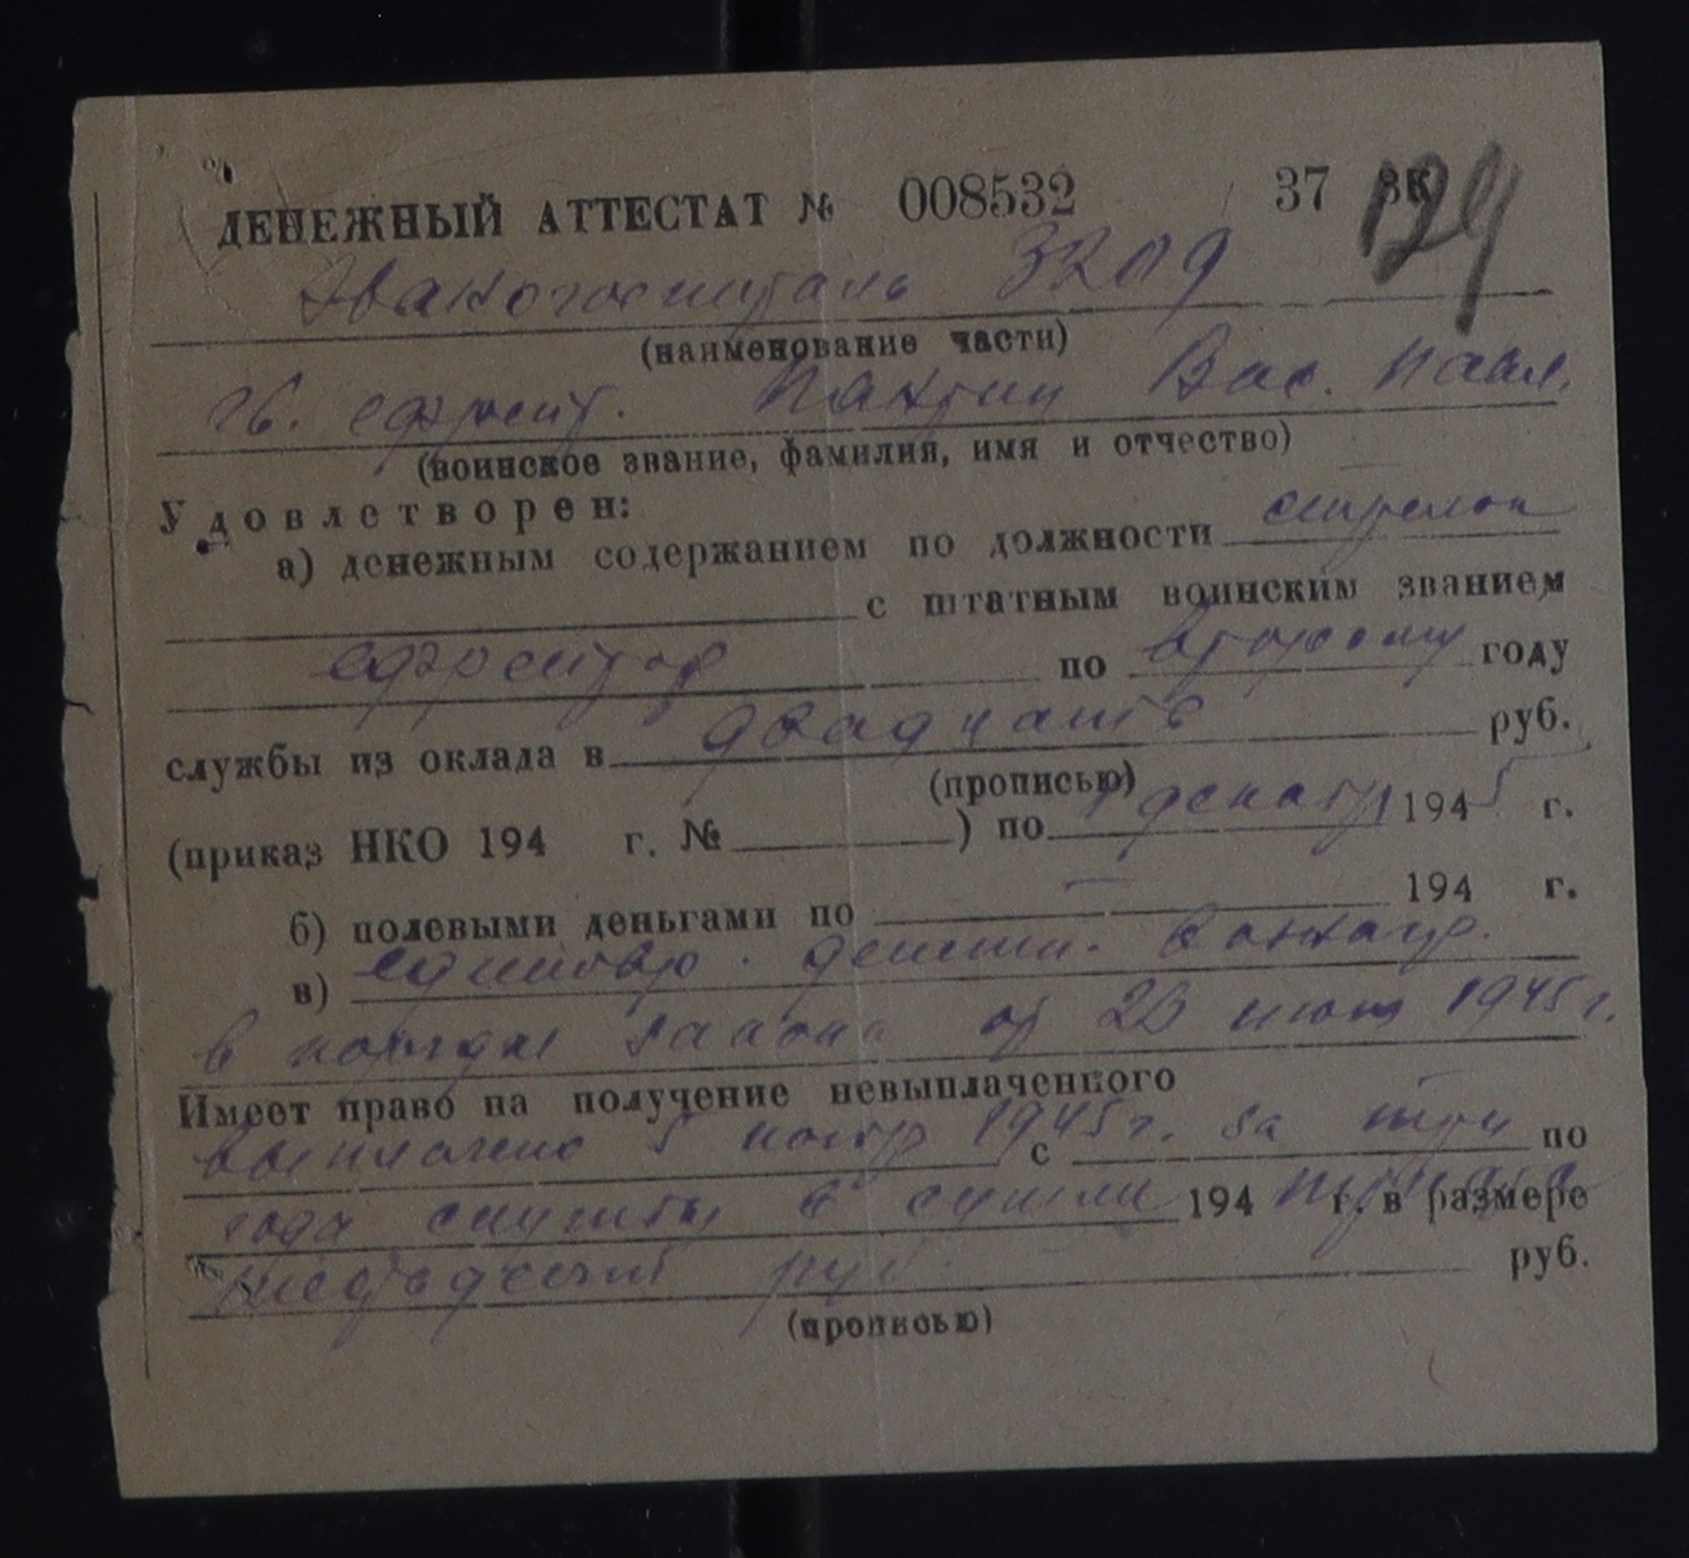 ДЕНЕЖНЫЙ АТТЕСТАТ № 008532 37
Эвакогоспиталь 3209
(наименование части)
гв. ефрейт. Вас. Павл.
(воинское звание, фамилия, имя и отчество)
Удовлетворен:
а) денежным содержанием по должности стрелок
с штатным воинским званием
ефрейтор по второму году
службы из оклада в двадцать руб.
(прописью)
(приказ НКО 194 г. № ) по декабр 1945 г.
б) полевыми деньгами по — 194 г.
в) единовр. денежн. вознагр.
в порядке закона от 23 июня 1945 г.
Имеет право на получение невыплаченного
выплачено 5 ноябр 1945 г. за три с по
года службы в сумме 194 г. в размере
шестьдесят руб. руб.
(прописью)